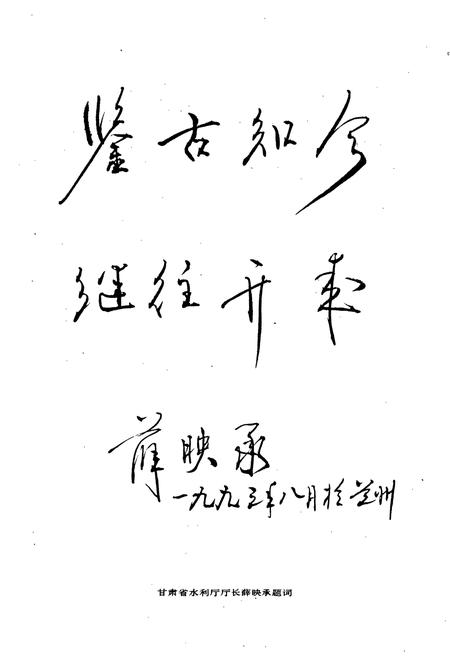 鉴古知今
继往开来
薛映承
一九九三年八月于兰州
甘肃省水利厅厅长薛映承题词